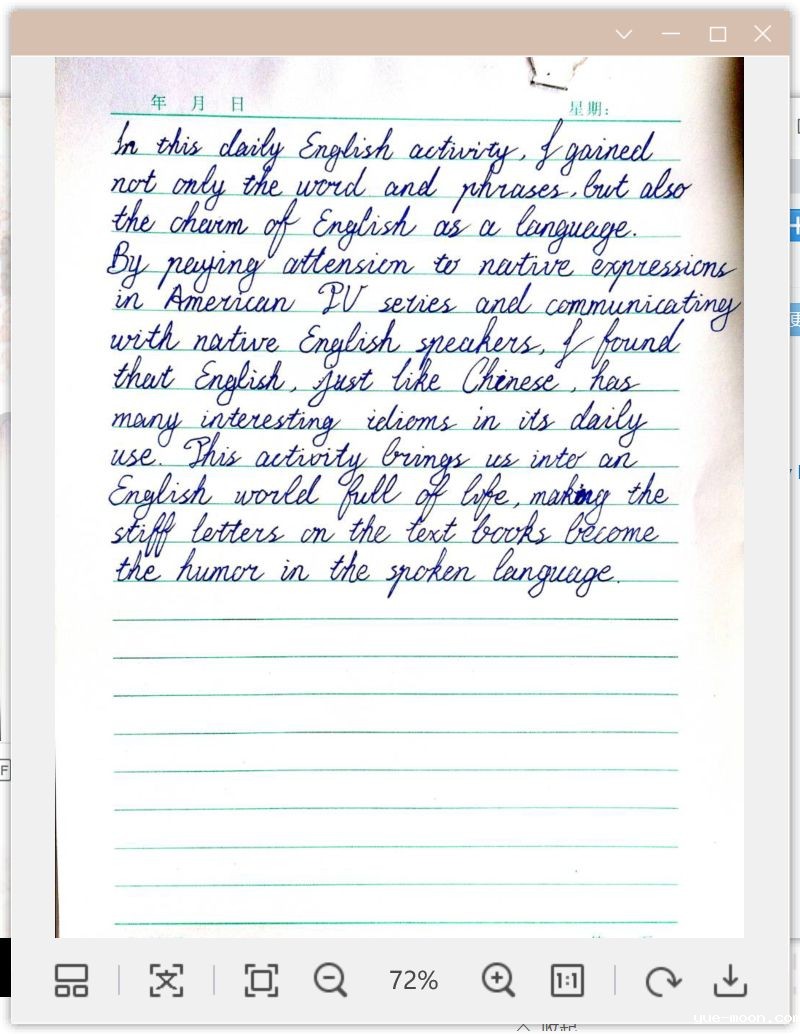 年 月 日 星期:
In this daily English activity, I gained
not only the word and phrases, but also
the charm of English as a language.
By paying attension to native expressions
in American TV series and communicating
with native English speakers, I found
that English, just like Chinese, has
many interesting idioms in its daily
use. This activity brings us into an
English world full of life, making the
stiff letters on the text books become
the humor in the spoken language.
72%
1:1
yue-moon.com